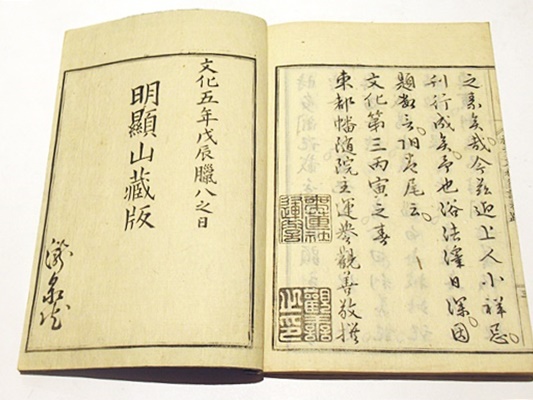 之系矣哉今玆迎上人小祥忌。
刊行成矣予也浴法澤日深因
題數言。附卷尾云。
文化第三丙寅之春
東都幡随院主運譽觀善敬撰
蓮社
運譽
觀善
之印
文化五年戊辰臘八之日
明顯山藏版